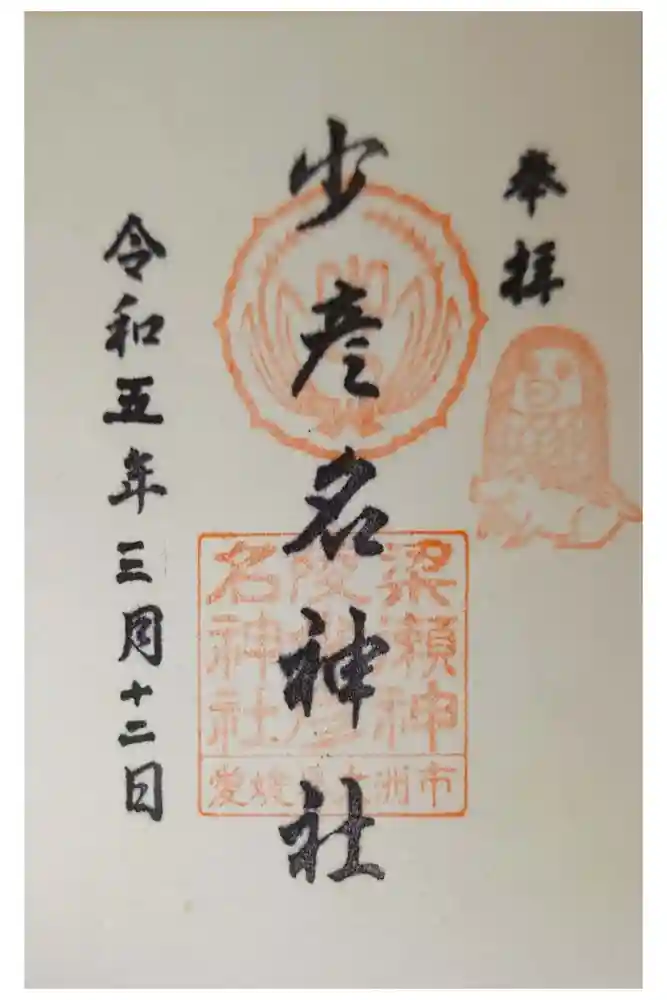 奉拝
少彦名神社
梁瀬神
陵少彦
名神社
愛媛県大洲市
令和五年三月十二日